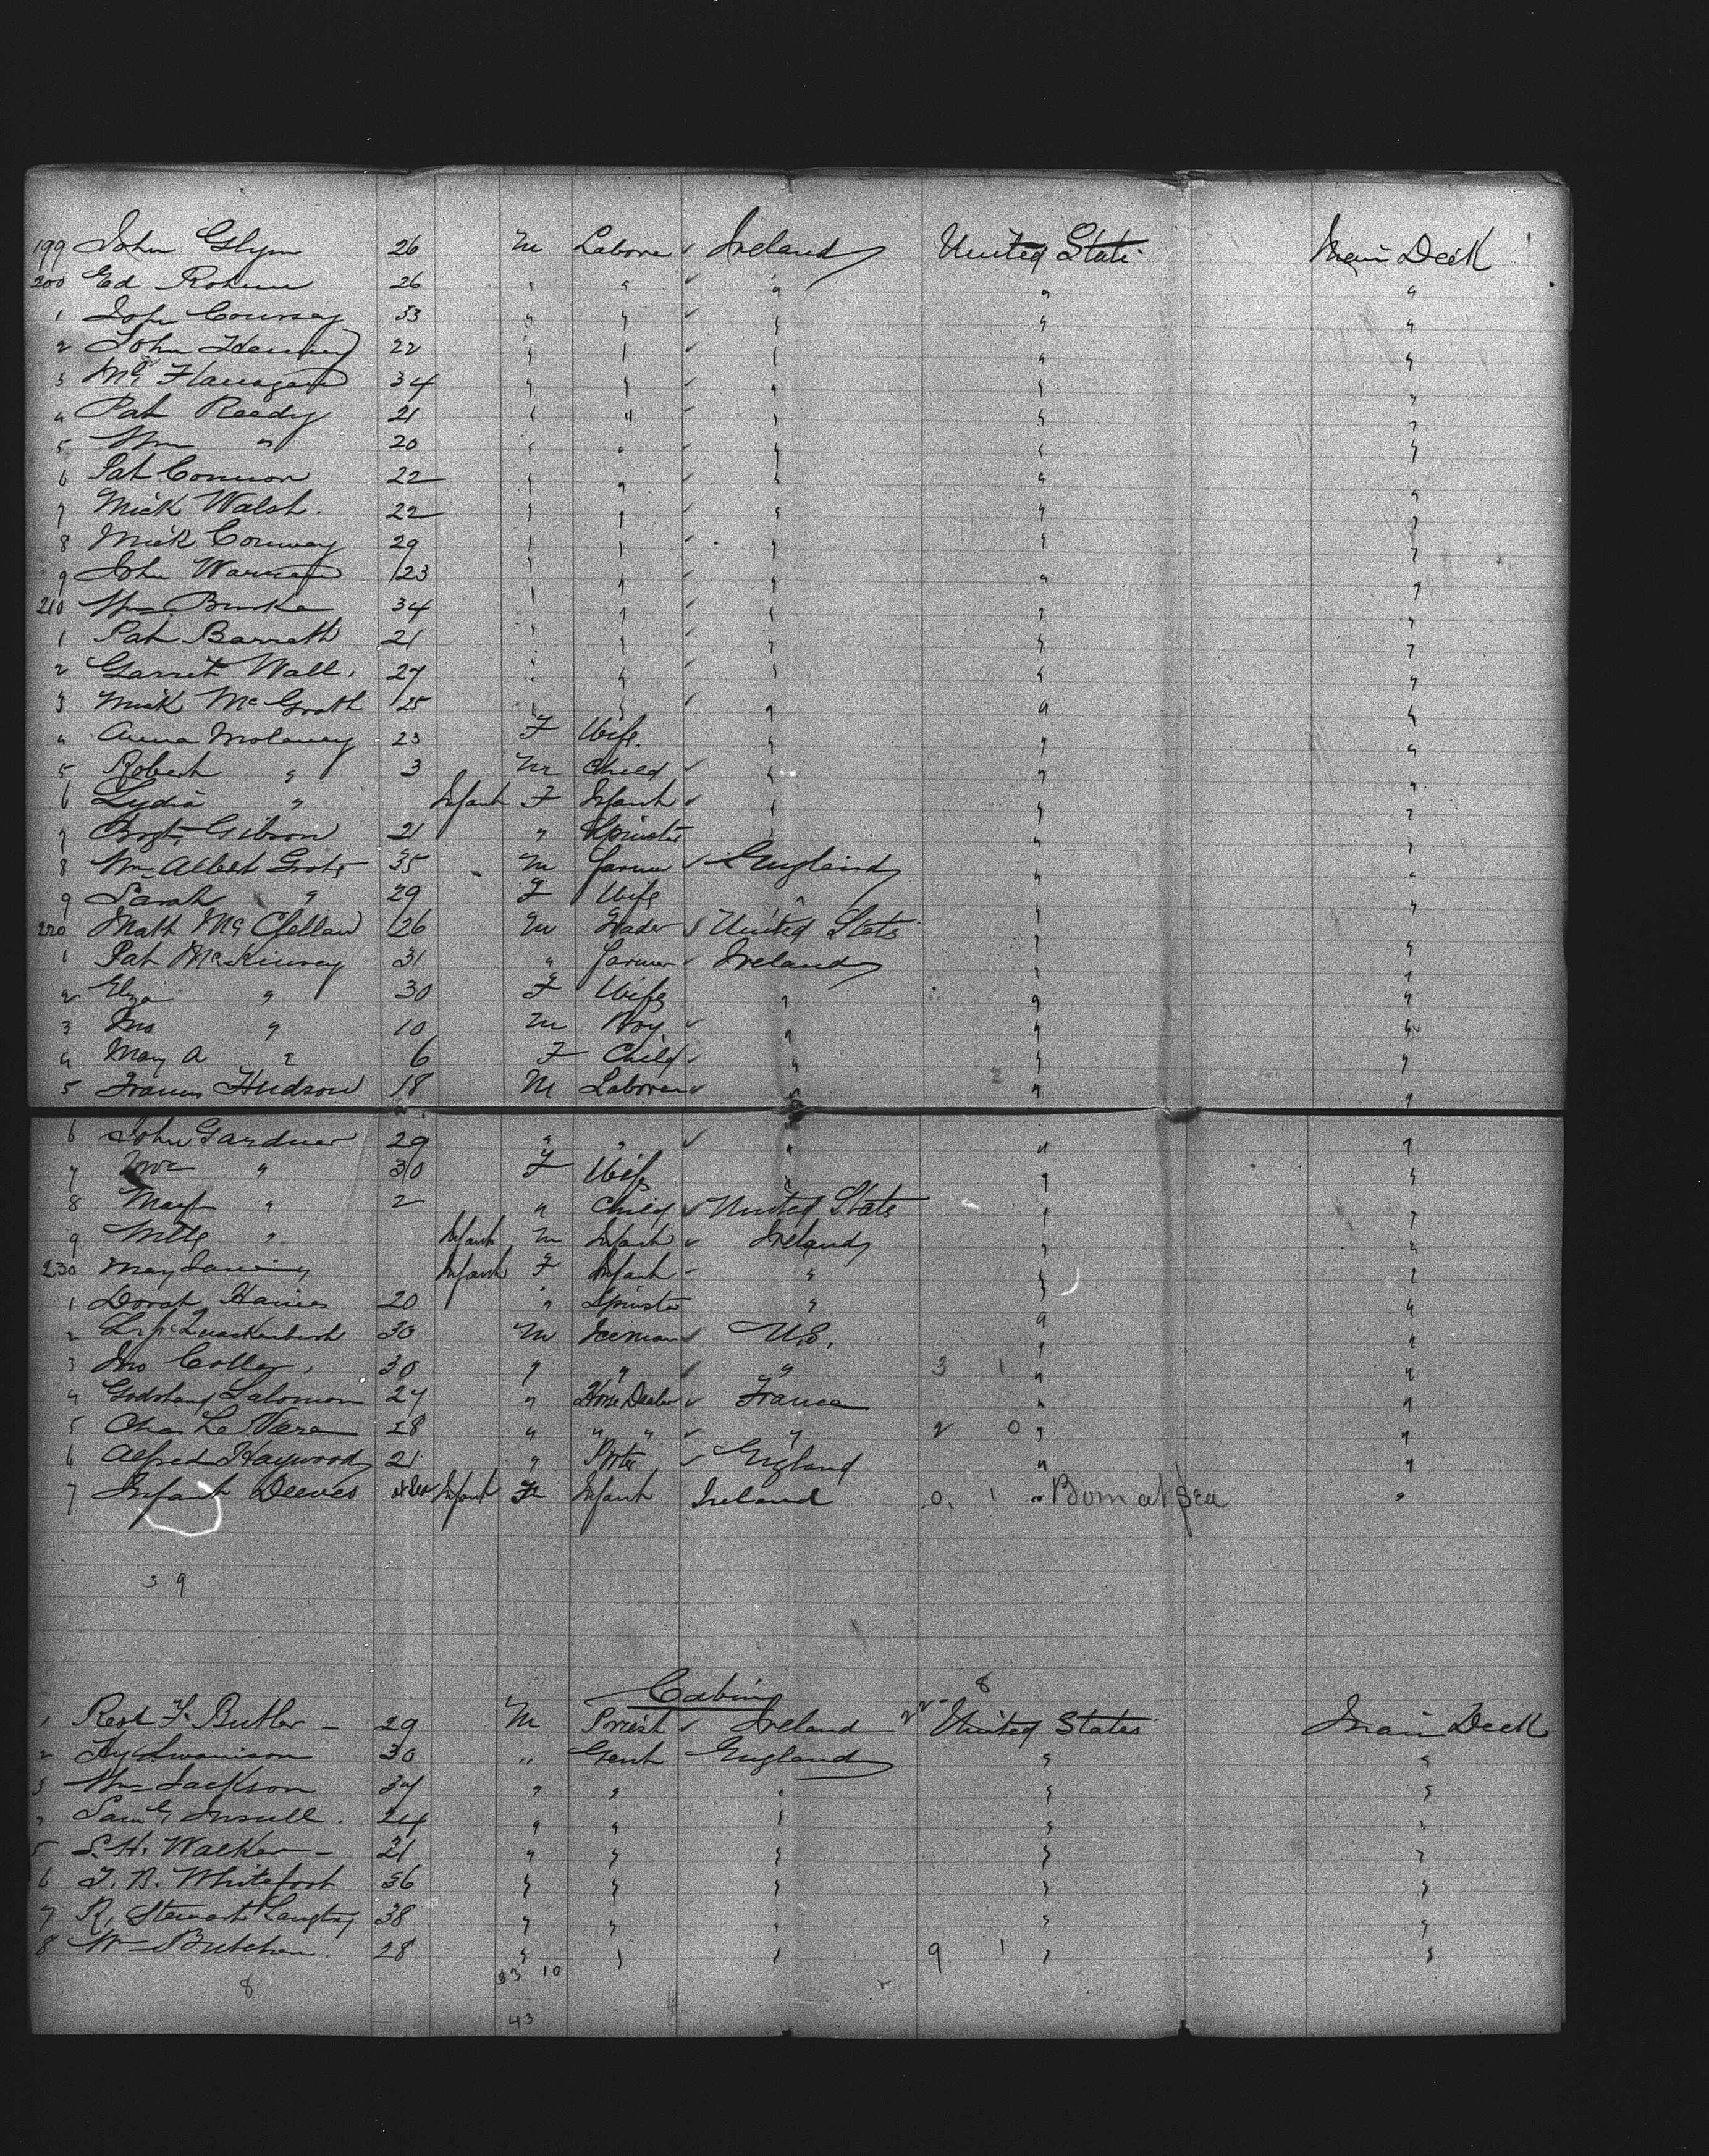 199 John Glynn 26 M Labore Ireland United State Main Deck
200 Ed 26 " " " " "
1 53 " " " " "
2 John 22 " " " " "
3 Flanagan 34 " " " " "
4 Pat Reedy 21 " " " " "
5 Wm " 20 " " " " "
6 Pat Connor 22 " " " " "
7 Mick Walsh. 22 " " " " "
8 Mick Conway 29 " " " " "
9 John 23 " " " " "
210 Wm Burke 34 " " " " "
1 Pat Barrett 21 " " " " "
2 Garret Wall. 27 " " " " "
3 Mick McGrath 25 " " " " "
4 Anna Molaney 23 F Wife. " " "
5 Robert " 3 M Child " " "
6 Lydia " Infant F Infant " " "
7 Gibson 21 " Spinster " " "
8 Wm Albert 35 M Farmer England " "
9 Sarah " 29 F Wife " " "
220 Matt McClellan 26 M United States " "
1 Pat McKinsey 31 " Farmer Ireland " "
2 Eliza " 30 F Wife " " "
3 Jno " 10 M Boy " " "
4 Mary A " 6 F Child " " "
5 Francis Hudson 18 M Laborer " " "
6 John Gardner 29 " " " " "
7 " 30 F Wife " " "
8 " 2 " Child United States " "
9 " Infant M Infant Ireland " "
230 May Infant F Infant " " "
1 Haines 20 " Spinster " " "
2 Quackenbush 30 M Iceman U.S. " "
3 Jno 30 " " " 3 1 " "
4 Salomon 27 " Horse Dealer France " "
5 Chas Le 28 " " " " 2 0 " "
6 Alfred Haywood 21 " Porter England " "
7 Infant Deeves Infant Infant Ireland 0. 1 " Born at Sea "
39
Cabin 8
1 Revd F. Butler 29 M Priest Ireland 2 United States Main Deck
2 Hy Swainson 30 " Gent England " "
3 Wm Jackson " " " " "
Saml Insull. 24 " " " " "
5 S. H. Walker 21 " " " " "
6 Whitefoot 36 " " " " "
7 R. Stewart 38 " " " " "
8 Wm Butcher. 28 " " " 9 1 " "
33 10
8
43